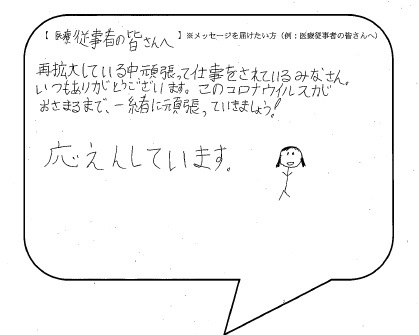 【 医療従事者の皆さんへ 】※メッセージを届けたい方（例：医療従事者の皆さんへ）
再拡大している中頑張って仕事をされているみなさん。
いつもありがとうございます。このコロナウイルスが
おさまるまで、一緒に頑張っていきましょう!
応えんしています。